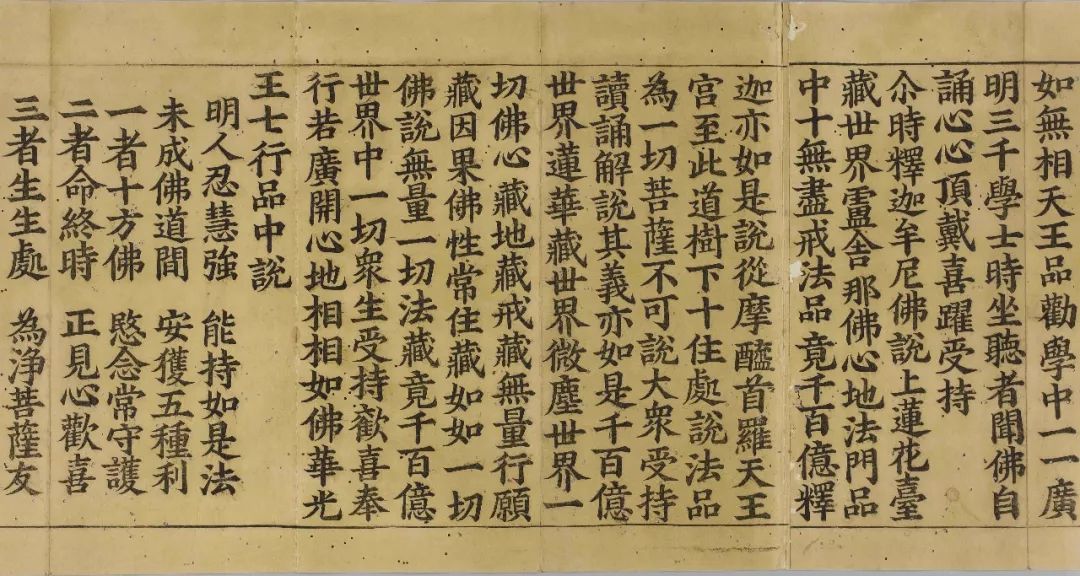 如無相天王品勸學中一一廣
明三千學士時坐聽者聞佛自
誦心心頂戴喜躍受持
尒時釋迦牟尼佛說上蓮花臺
藏世界盧舍那佛心地法門品
中十無盡戒法品竟千百億釋
迦亦如是說從摩醯首羅天王
宮至此道樹下十住處說法品
為一切菩薩不可說大衆受持
讀誦解說其義亦如是千百億
世界蓮華藏世界微塵世界一
切佛心藏地藏戒藏無量行願
藏因果佛性常住藏如如一切
佛說無量一切法藏竟千百億
世界中一切衆生受持歡喜奉
行若廣開心地相相如佛華光
王七行品中說
明人忍慧強　能持如是法
未成佛道間　安獲五種利
一者十方佛　愍念常守護
二者命終時　正見心歡喜
三者生生處　為淨菩薩友